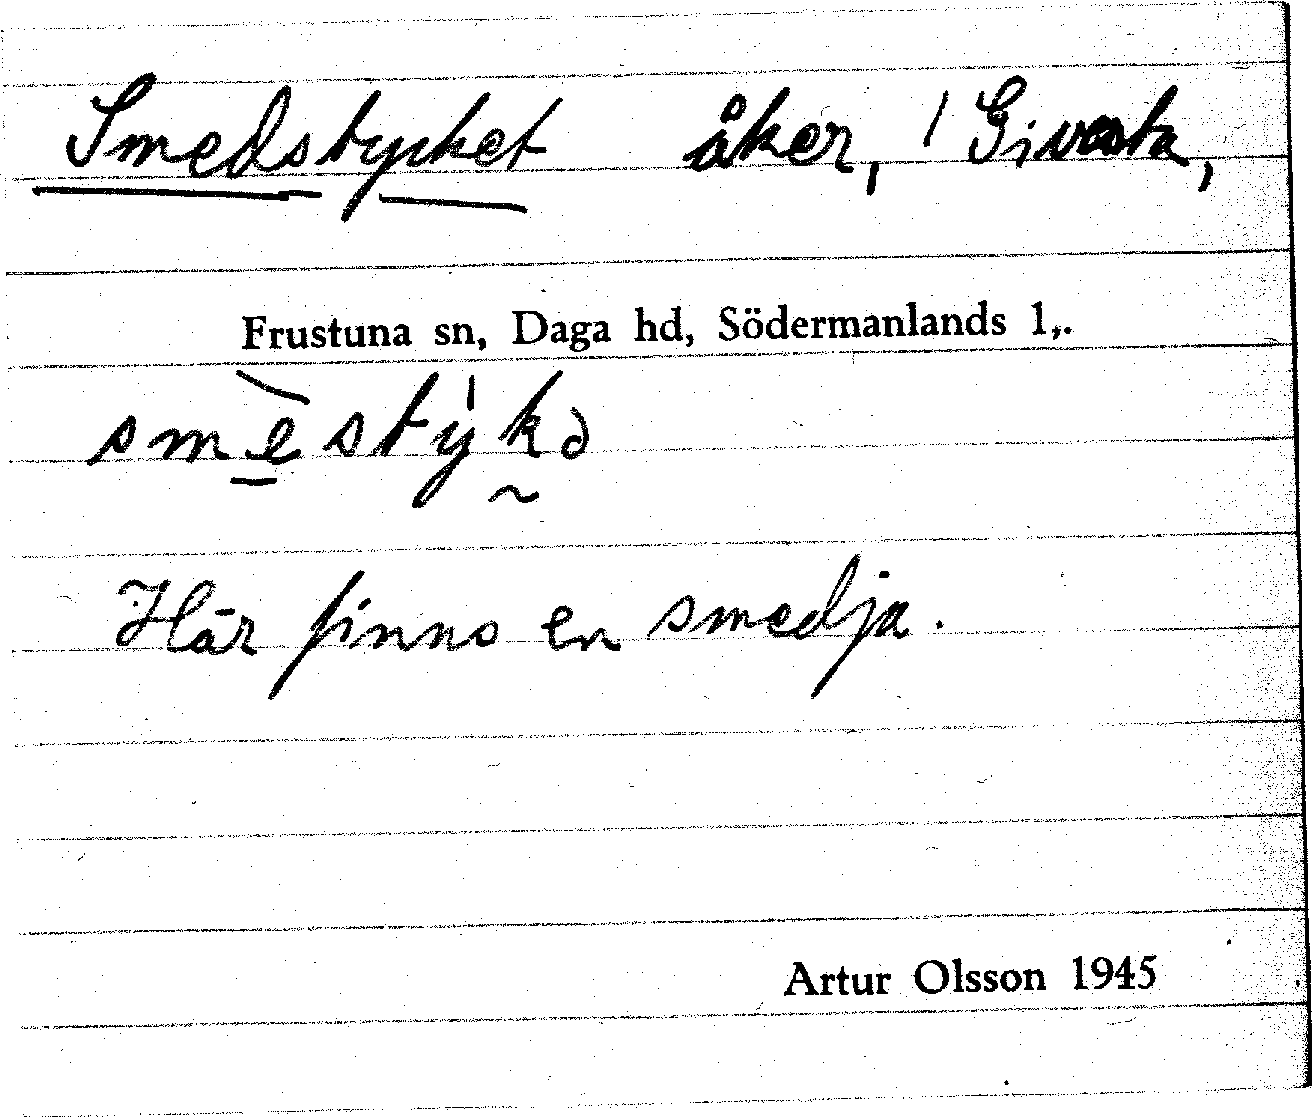 Smedstycket åker, / Givesta,
Frustuna sn, Daga hd, Södermanlands l,.
smèstýkə
Här finns en smedja.
Artur Olsson 1945